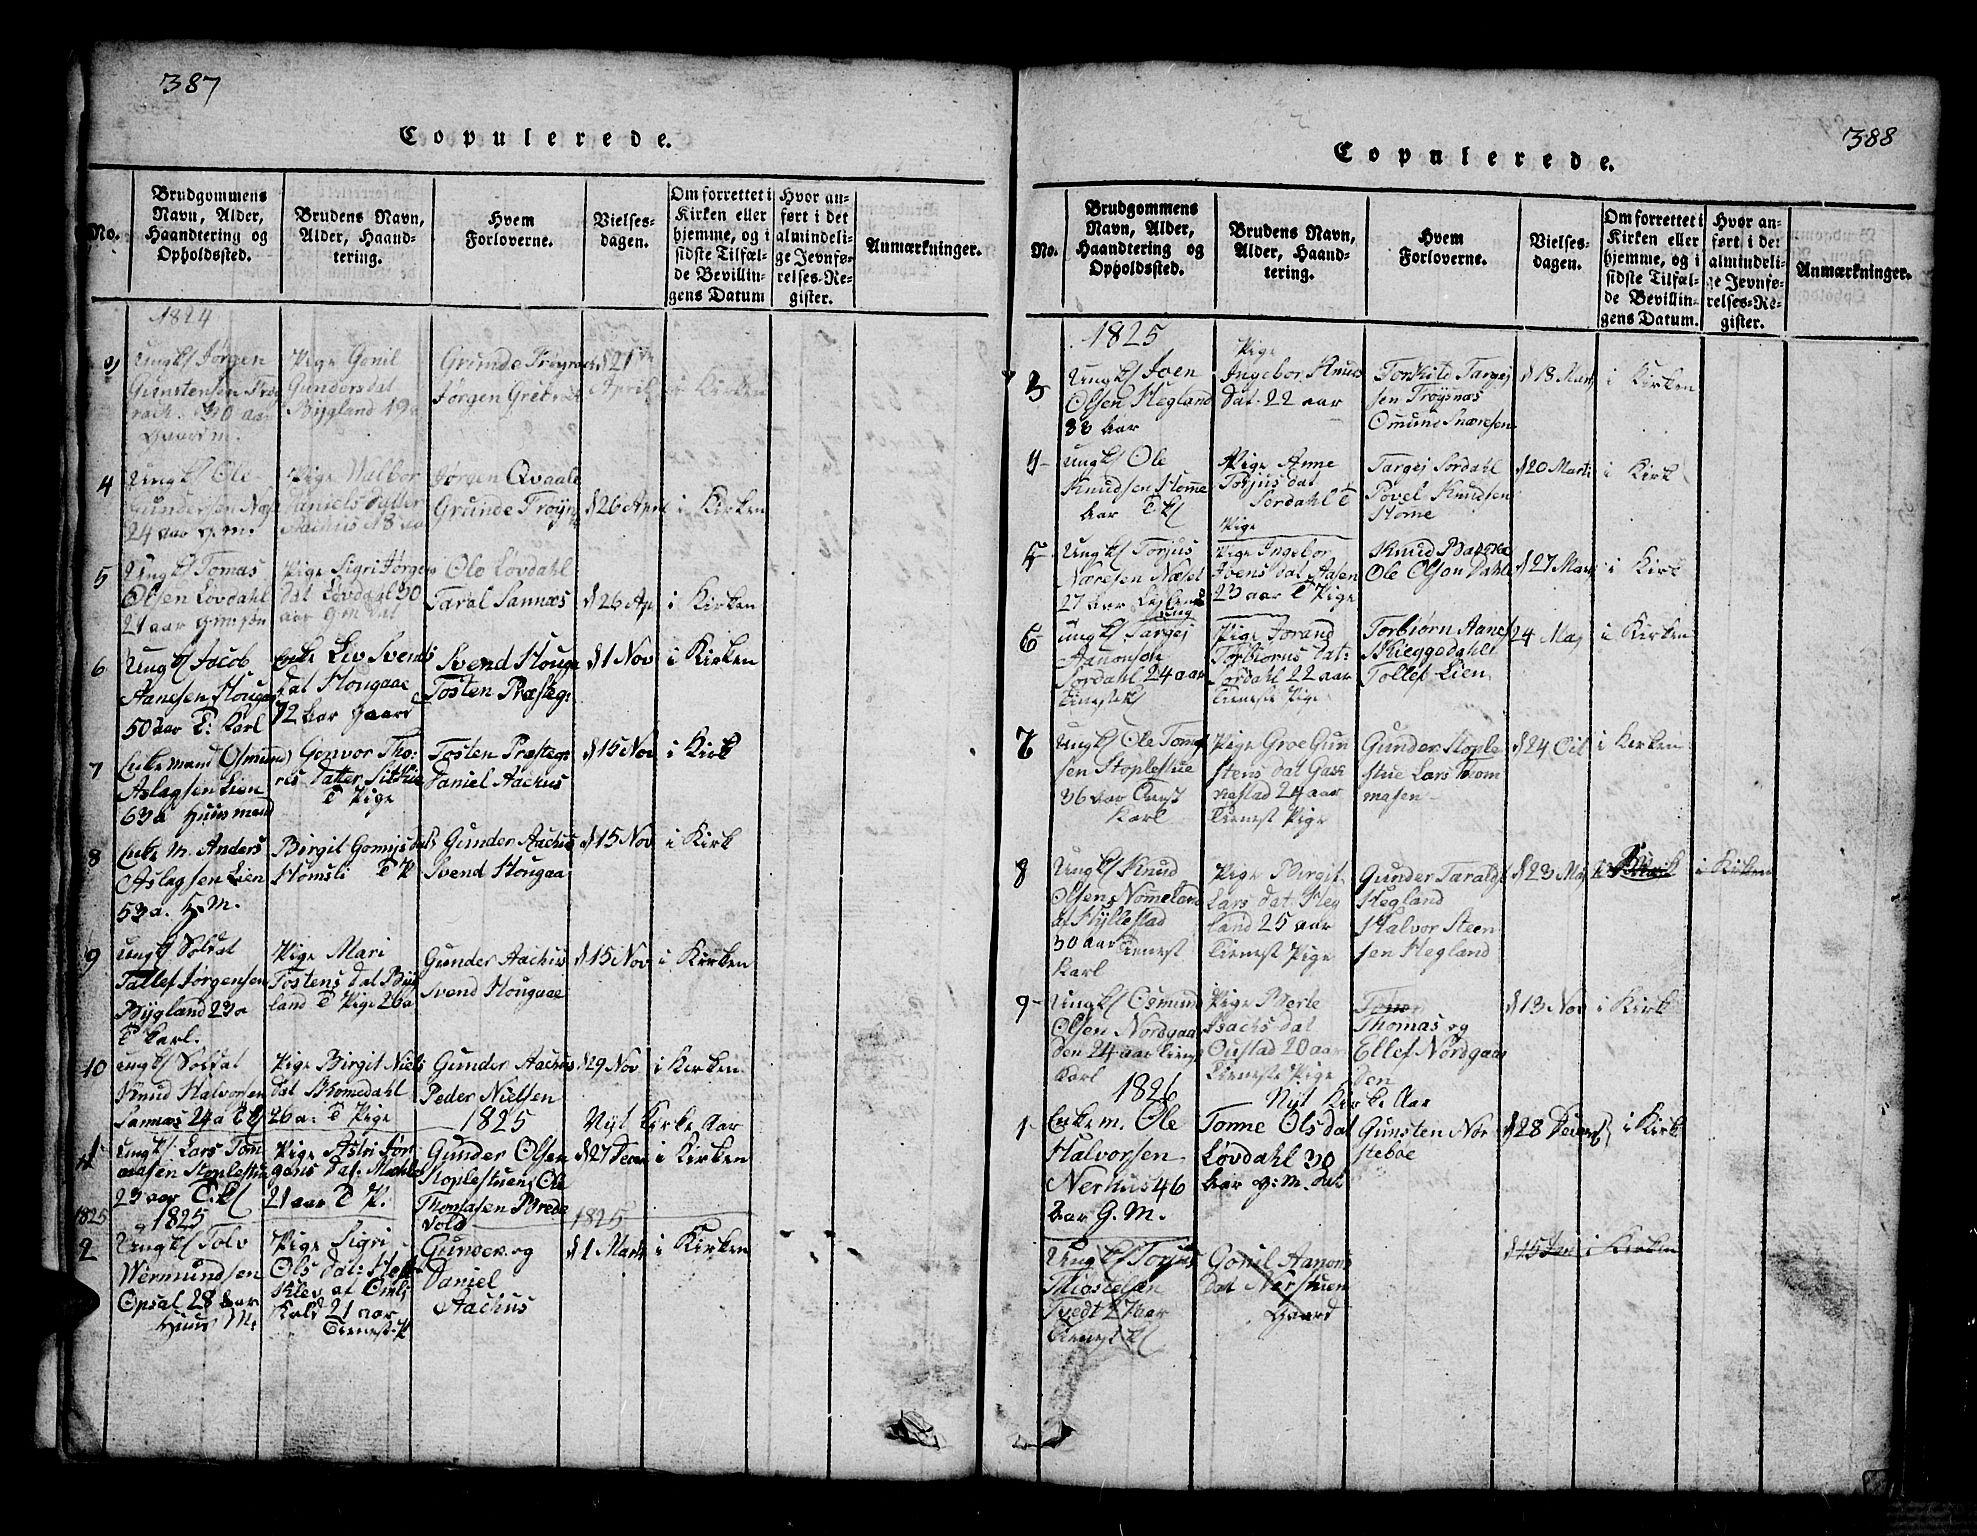 387
Copulerede.
No.
Brudgommens
Navn, Alder,
Haandtering og
Opholdssted.
Brudens Navn,
Alder, Haand-
tering.
Hvem
Forloverne.
Vielses-
dagen.
Om forrettet i
Kirken eller
hjemme, og i
sidste Tilfæl-
de Bevillin-
gens Datum
Hvor an-
ført i det
almindeli-
ge Jevnfø-
relses-Re-
gister.
Anmærkninger.
1824
3)
Ungk Jørgen
Gunstensen
30 aar
Gaardm.
Pige Gonil
Gundersdat
Bygland 19
Grunde
Jørgen
d 21
April
i Kirken
4
Ungk Ole
Gundersen
24 aar g.m.
Pige Walbor
Daniels dytter
Aachus 18 aa
Jørgen Qvaale
Grunde
d 26 April
i Kirken
5
Ungk Tomas
Olsen Lovdahl
21 aar
Pige Sigri Jørgens
dat Lovdahl 30
aar g m dat
Ole Lovdahl
Taral Sannæs
d 26 Ap
i Kirken
6
Ungk Jacob
Aanesen Hougaa
50 aar T: Karl
Enke Liv Svends
dat Hougaae
72 aar gaard
Svend Houga
Tosten Præsteg:
d 1 Nov
i Kirken
7
Enkemand Osmund
Aslagsen Lien
63 a Huusmand
Gonvor Tho:
res Datter
T Pige
Tosten Præsteg:
Daniel Aachus
d 15 Nov
i Kirk
8
Enke M. Anders
Aslagsen Lien
53 a. H. M.
Birgit Gomijsdat
Homsli T P
Gunder Aachus
Svend Hougaa
d 15 Nov
i Kirk
9
Ungk Soldat
Tallef Jørgensen
Bygland 23 a
T Karl.
Pige Mari
Tostens dat Byg
land T Pige 26 a
Gunder Aachus
Svend Hougaae
d 15 Nov
i Kirken
10
Ungk Soldat
Knud Halvorsen
Sannæs 24 a
Pige Birgit Niels
dat Homedahl
26 a: T Pige
Gunder Aachus
Peder Nielsen
d 29 Nov
i Kirken
1825
Nyt Kirke Aar
1
Ungk: Lars Tom
aasen Stoplestue
23 aar
Pige Astri Jør
gens dat:
21 aar T Pi.
Gunder Olsen
Stoplestuen, Ole
Thomasen Brede
vold
d 27 Decem
i Kirken
1825
1825
1825
2
Ungk Tolv
Wermundsen
Opsal 28 aar
Huus M.
Pige Sigri
Ols dat:
Klev at Omli
Kald 21 aar
Tienest P
Gunder og
Daniel
Aachus
d 1 Marti
i Kirken
388
Copulerede.
No.
Brudgommens
Navn, Alder,
Haandtering og
Opholdssted.
Brudens Navn,
Alder, Haand-
tering.
Hvem
Forloverne.
Vielses-
dagen.
Om forrettet i
Kirken eller
hjemme, og i
sidste Tilfæl-
de Bevillin-
gens Datum.
Hvor an-
ført i det
almindeli-
ge Jevnfø-
relses-Re-
gister.
Anmærkninger.
1825
3
Ungk Joen
Olsen Hegland
33 Aar
Pige
Ingebor Knuds
dat. 22 aar
Torkild Targej
sen Trøysnæs
Omund Snaresen
d 18 Mart
i Kirken
4
Ungk Ole
Knudsen Home
aar
Pige Anne
Torjus dat
Sordahl T
Pige
Targej Sordahl
Povel Knudsen
Home
d 20 Marti
i Kirk
5
Ungk Torjus
Næset
27 aar
Pige Ingebor
Joens dat Aasen
23 aar T Pige
Knud
Ole Olson Dahle
d 27 Mar
i Kirk
6
Ungk Targej
Aanonsøn
Sordahl 24 aar
Tienestk
Pige Jorand
Torbiorns dat:
Sordahl 22 aar
Tieneste Pige
Torbiørn Aanes
Skieggedahl
Tollef Lien
24 Maj
i Kirken
7
Ungk Ole Toma
sen Stoplestue
36 aar
Karl
Pige Groe Gun
stens dat
24 aar
Tienest Pige
Gunder Stople
stue Lars Thom
masen
d 24
i Kirken
8
Ungk Knud
Olsen Nomeland
at Hyllestad
30 aar Tienest
Karl
Pige Birgit
Lars dat. Heg
land 25 aar
Tienest Pige
Gunder Taralds
Hegland
Halvor Steen
sen Hegland
d 23 Maj
i Kirken
9
Ungk Osmund
Olsen Nordgaa
den 24 aar Tienes
Karl
Pige Berte
Isachs dat
Oustad 20 aar
Tieneste Pige
Thomas og
Ellef Nordgaar
den
d 13 Nov
i Kirk
1826
Nyt Kirke Aar
1
Enkem. Ole
Halvorsen
Nerhus 46
aar G. M.
Tonne Olsdat
Løvdahl 30
aar g: M. dat
Gunsten Nor
steboe
d 28 Decemb
i Kirk
Ungk Torjus
Tvedt 27 aar
Tienest k
Gonil Aanons
dat Nørstuen
Gaard
d 15 Jan
i Kirken